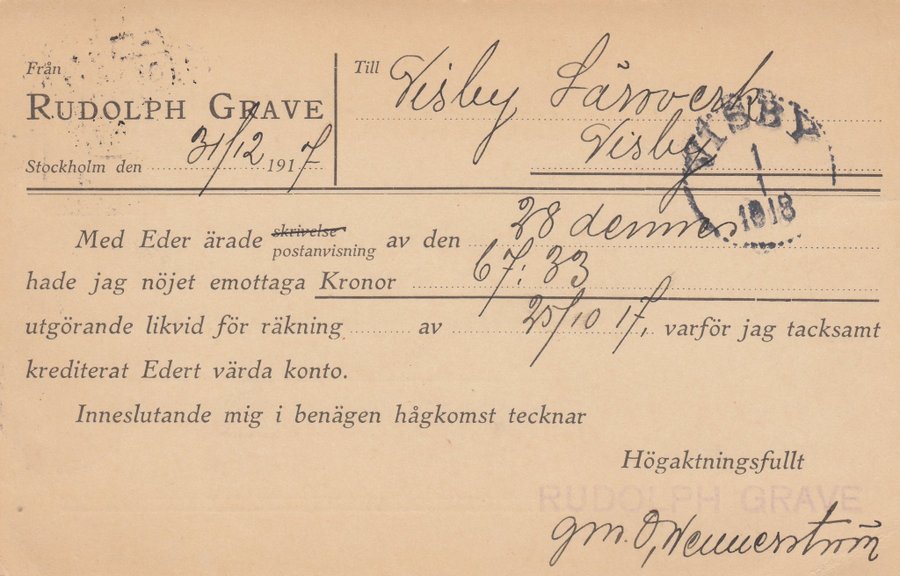 Från
RUDOLPH GRAVE
Stockholm den 31/12 1917
Till
Visby Läroverk
Visby
VISBY
1
1
1918
Med Eder ärade skrivelse postanvisning av den 28 dennes
hade jag nöjet emottaga Kronor 67:33
utgörande likvid för räkning av 25/10 17, varför jag tacksamt
krediterat Edert värda konto.
Inneslutande mig i benägen hågkomst tecknar
Högaktningsfullt
RUDOLPH GRAVE
gm. O, Wennerström